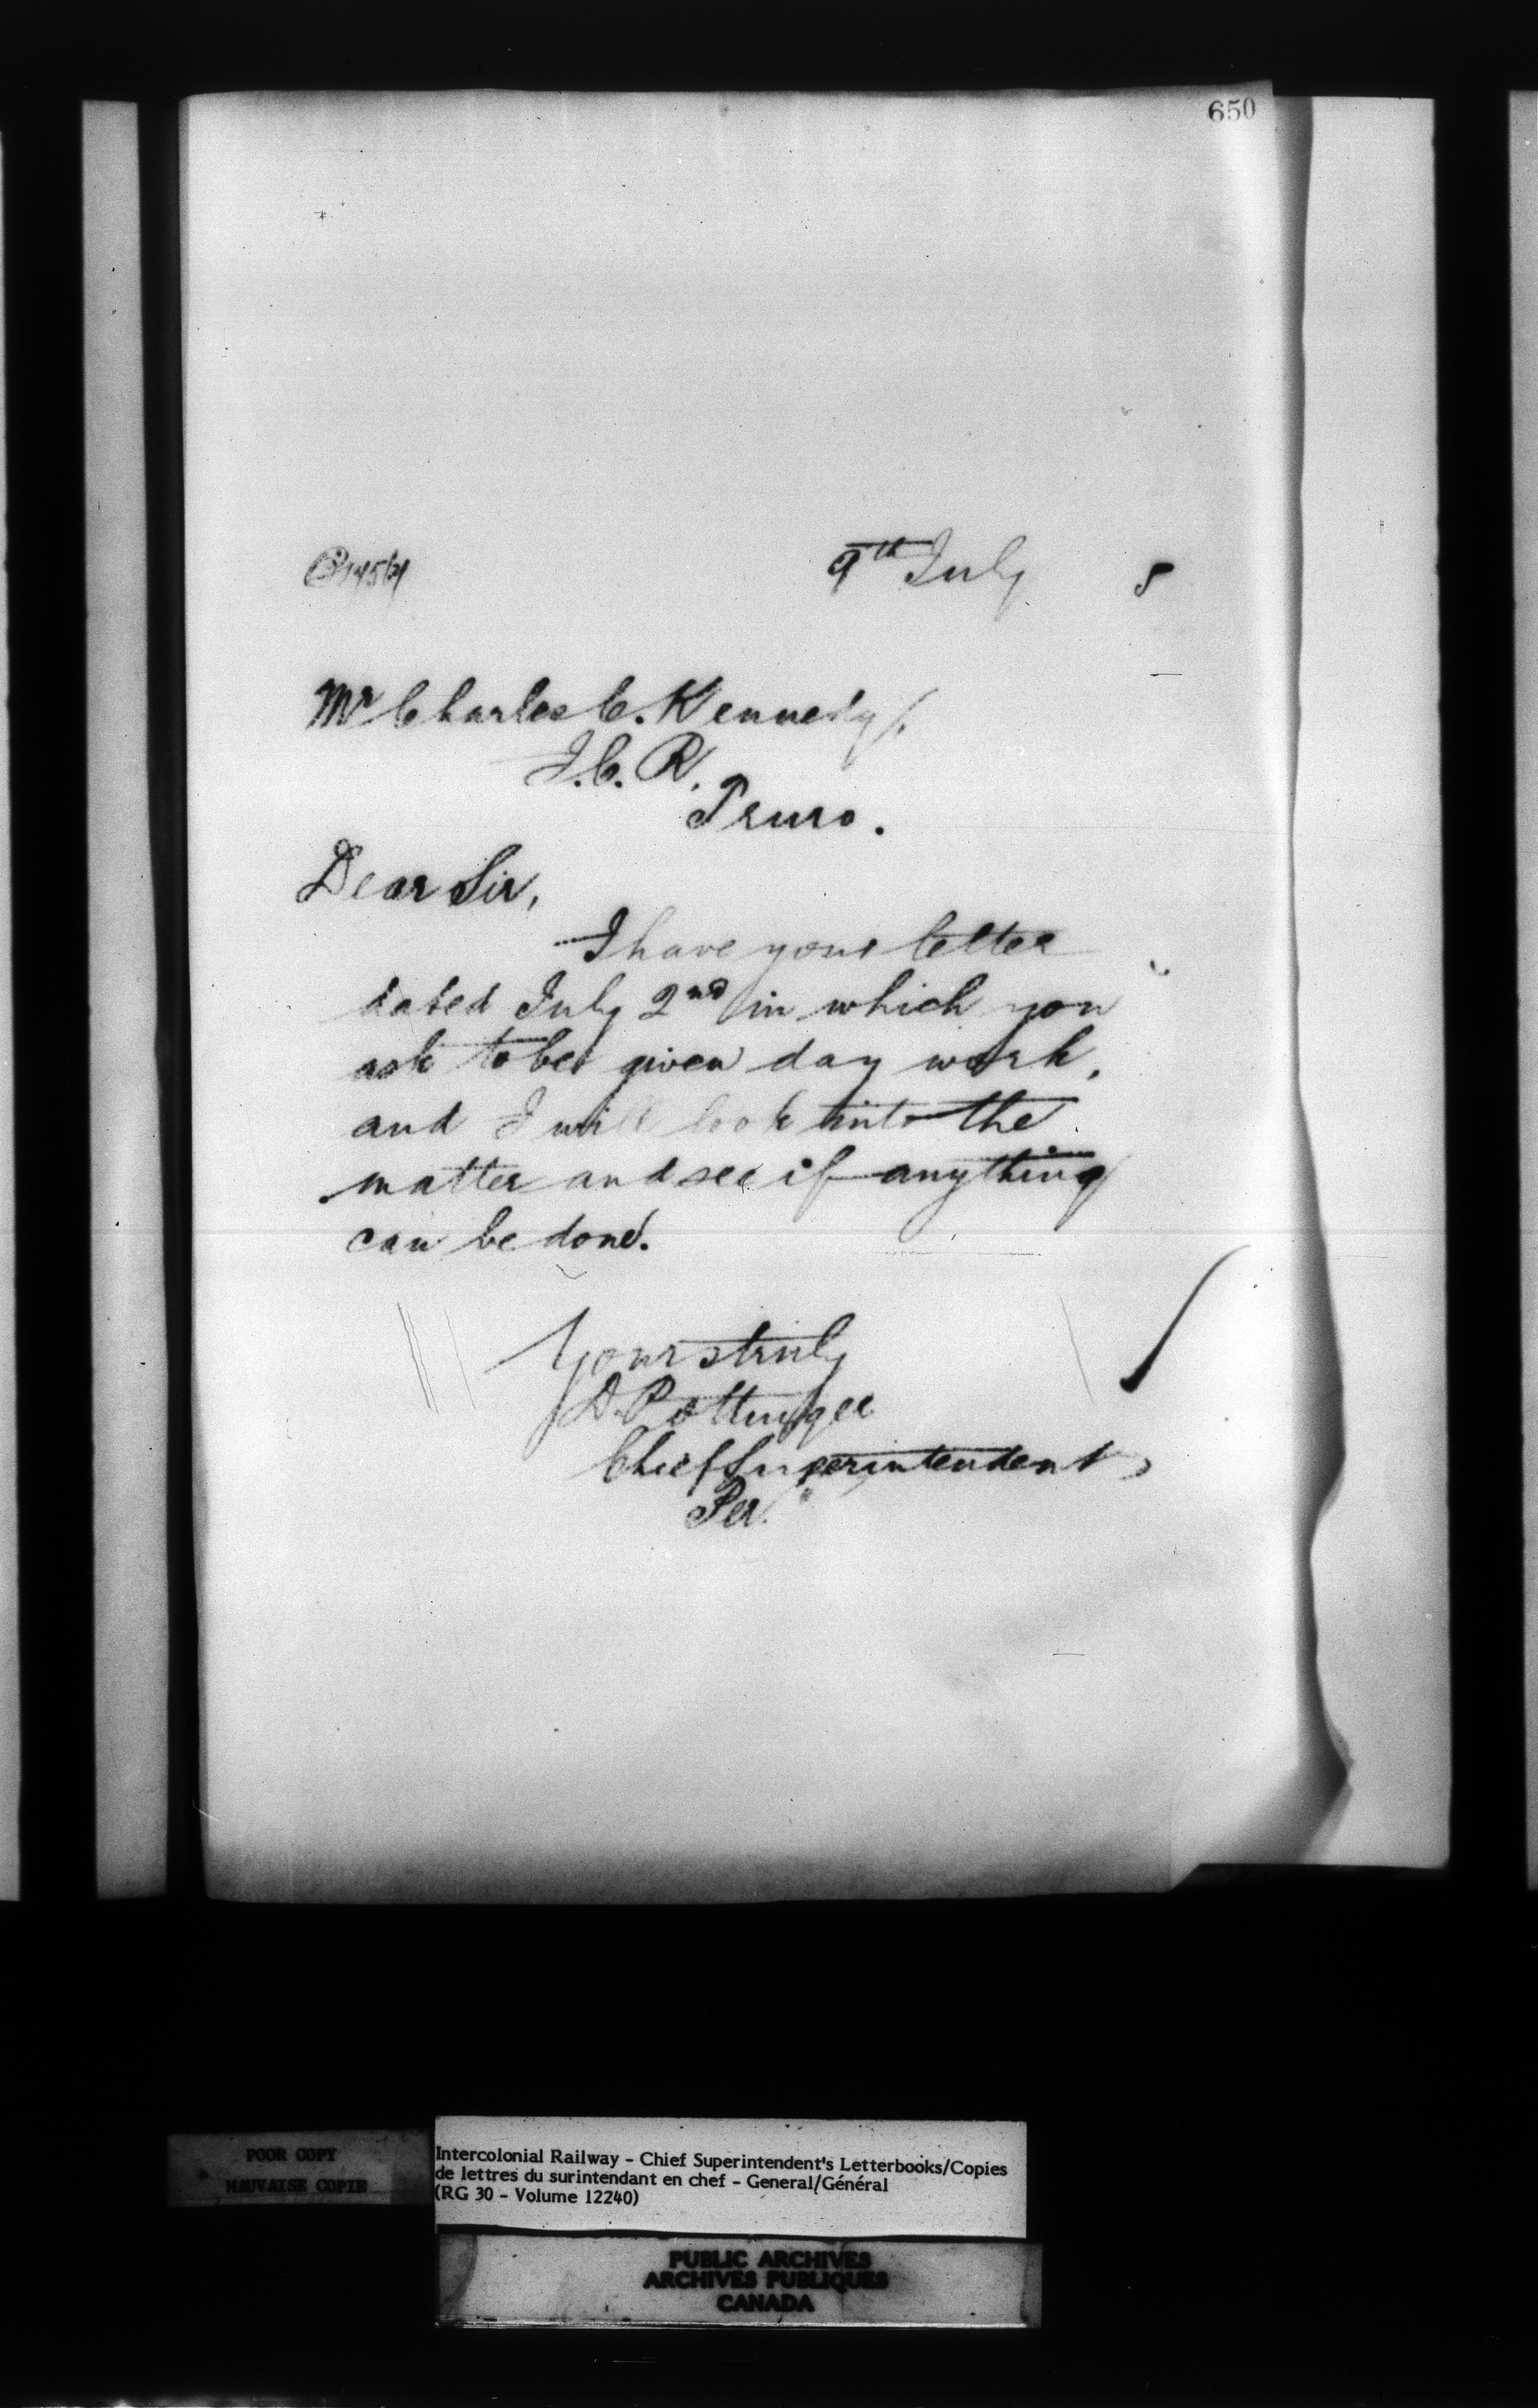 650
9th July 8
Mr Charles C. Kennedy,
I.C.R.
Truro.
Dear Sir,
I have your letter
dated July 2nd in which you
ask to be given day work,
and I will look into the
matter and see if anything
can be done.
Yours truly
D. Pottinger
Chief Superintendent
Per.
POOR COPY
MAUVAISE COPIE
Intercolonial Railway - Chief Superintendent's Letterbooks/Copies
de lettres du surintendant en chef - General/Général
(RG 30 - Volume 12240)
PUBLIC ARCHIVES
ARCHIVES PUBLIQUES
CANADA